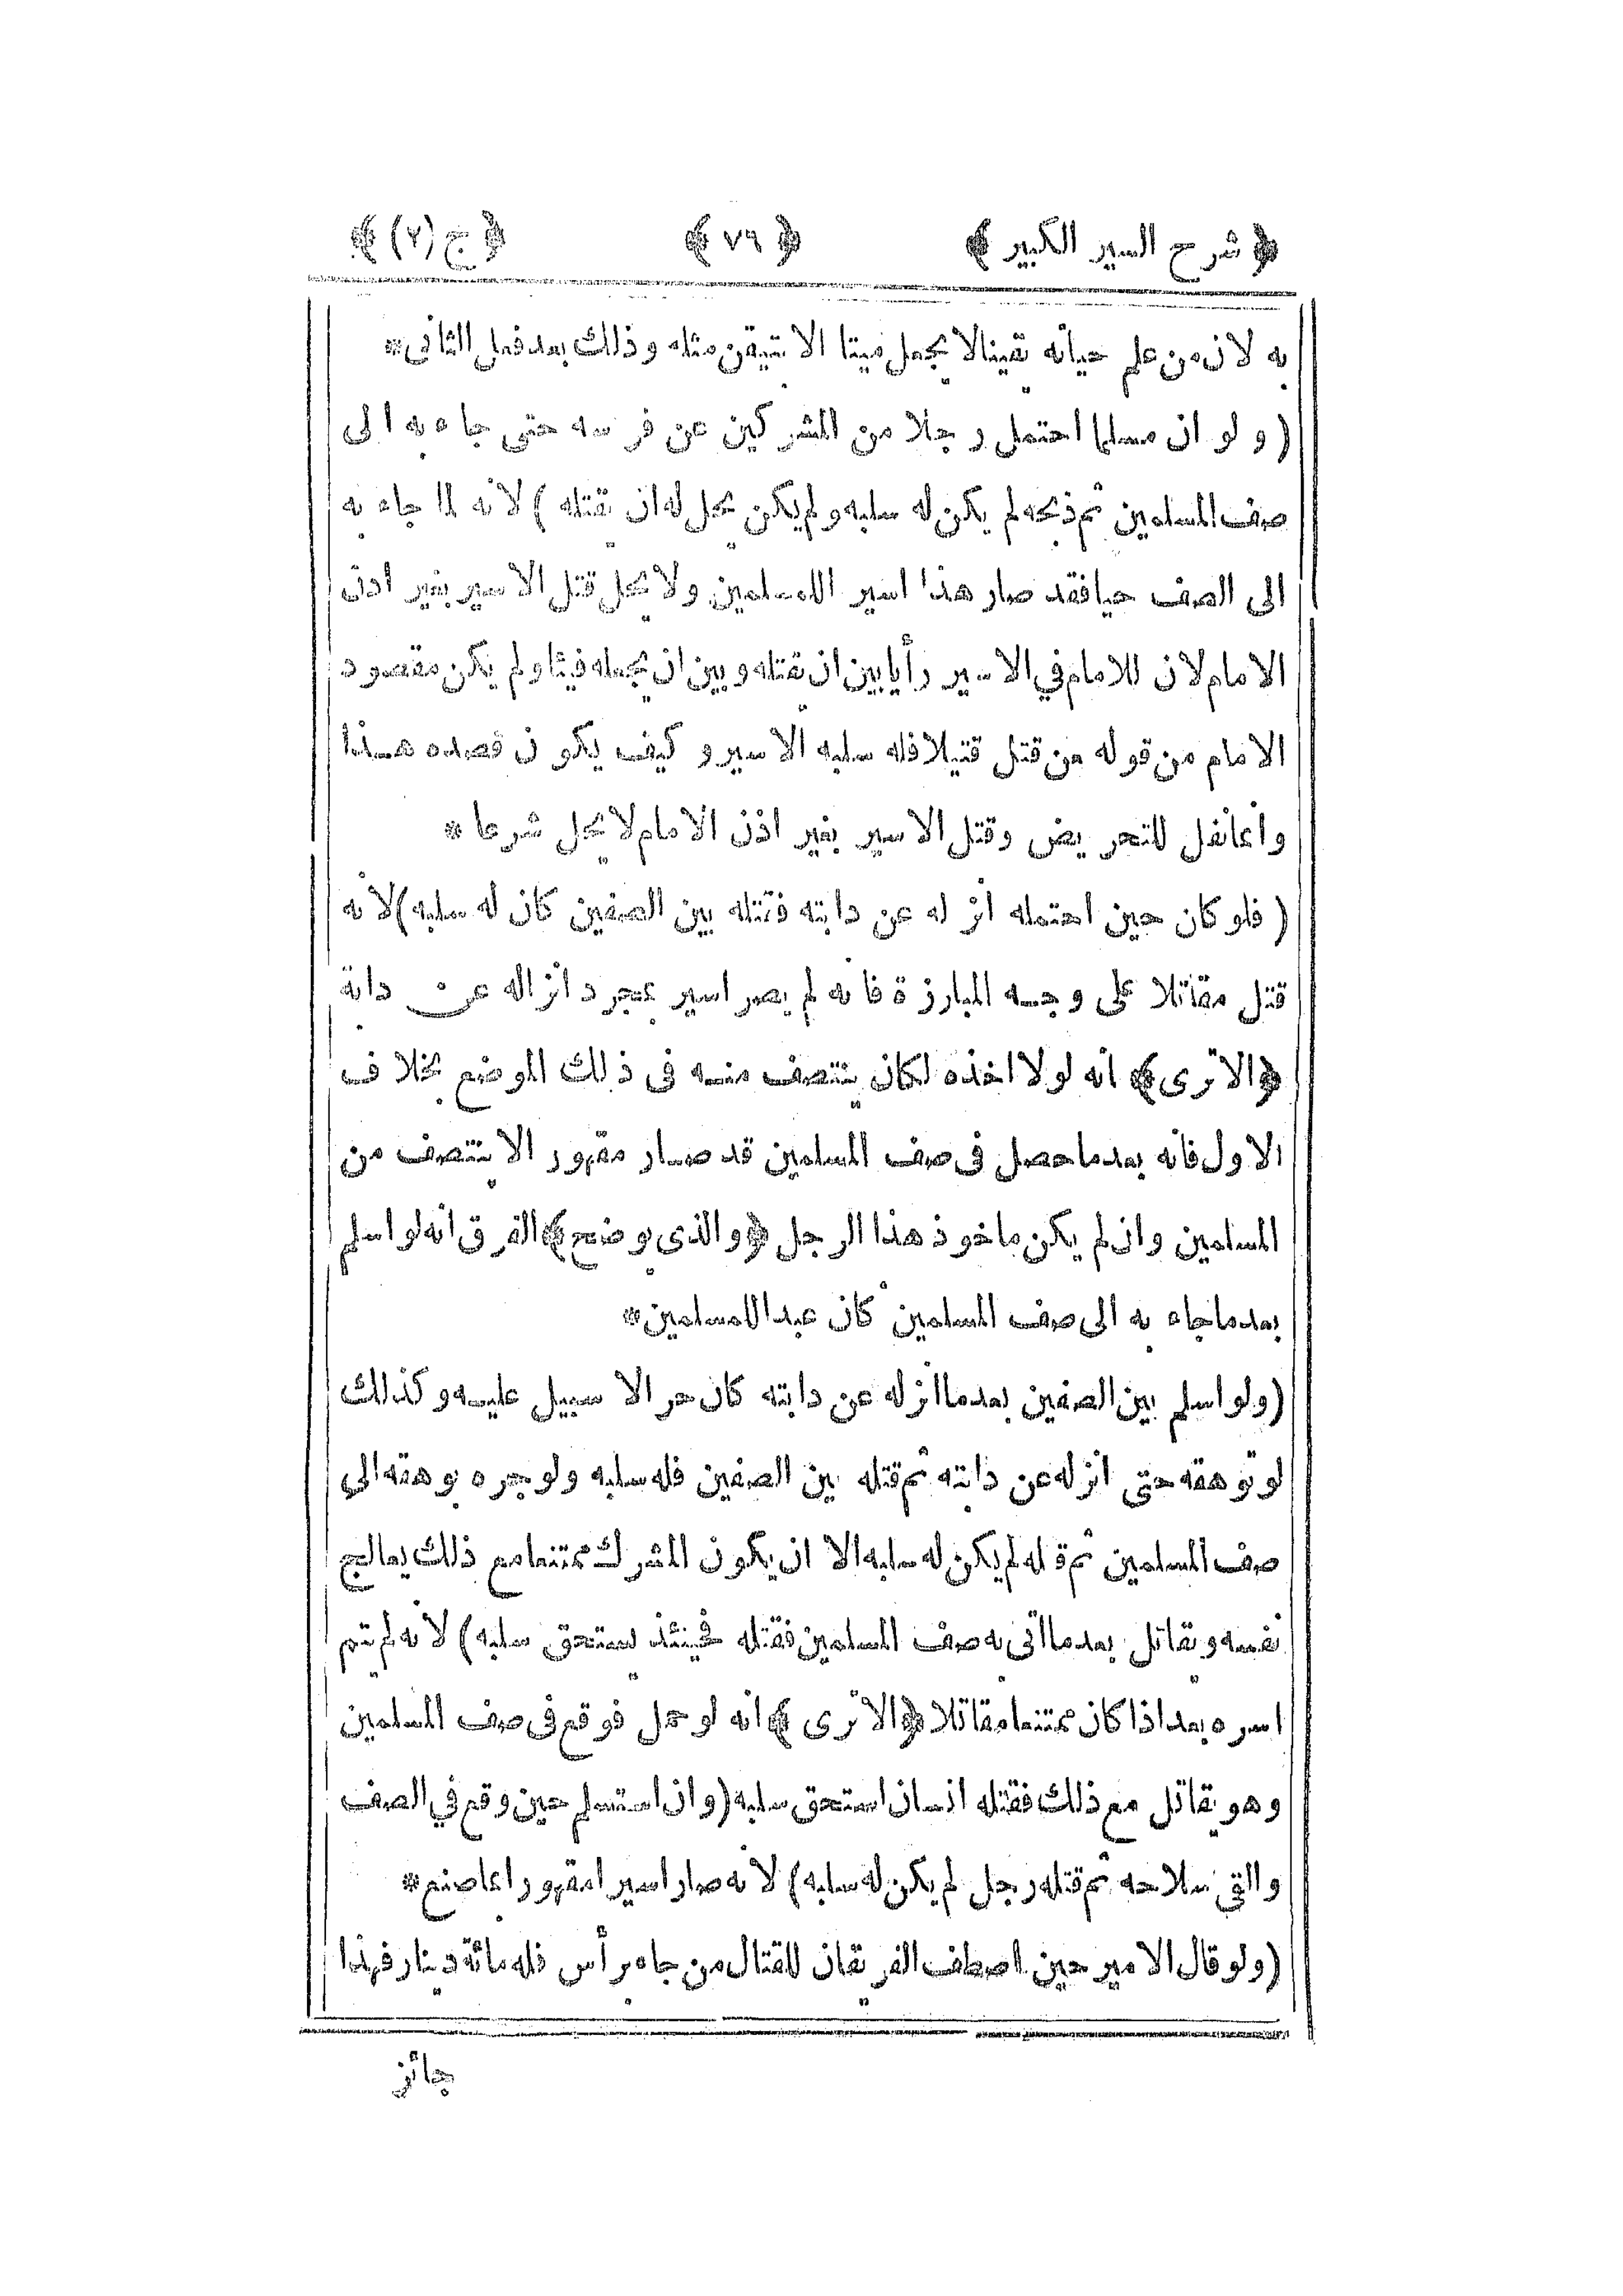 ﴿ شرح السير الكبير ﴾ ﴿ ٧٩ ﴾ ﴿ ج (٢) ﴾
به لان من علم حياته يقينا لا يجعل ميتا الا بتيقن مثله وذلك بعد فعل الثانى*
( ولو ان مسلما احتمل رجلا من المشركين عن فرسه حتى جاء به الى
صف المسلمين ثم ذبحه لم يكن له سلبه ولم يكن يحل له ان يقتله ) لانه لما جاء به
الى الصف حيا فقد صار هذا اسير المسلمين ولا يحل قتل الاسير بغير اذن
الامام لان للامام في الاسير رأيا بين ان يقتله وبين ان يجعله فيئا ولم يكن مقصود
الامام من قوله من قتل قتيلا فله سلبه الاسير وكيف يكون قصده هذا
وانما نفل للتحريض وقتل الاسير بغير اذن الامام لا يحل شرعا *
( فلو كان حين احتمله انزله عن دابته فقتله بين الصفين كان له سلبه ) لانه
قتل مقاتلا على وجه المبارزة فانه لم يصر اسير بمجرد انزاله عن دابة
﴿ الا ترى ﴾ انه لولا اخذه لكان ينتصف منه فى ذلك الموضع بخلاف
الاول فانه بعد ما حصل فى صف المسلمين قد صار مقهورا لا ينتصف من
المسلمين وان لم يكن ماخوذ هذا الرجل ﴿ والذى يوضح ﴾ الفرق انه لو اسلم
بعد ما جاء به الى صف المسلمين كان عبدا للمسلمين*
( ولو اسلم بين الصفين بعد ما انزله عن دابته كان حرا لا سبيل عليه وكذلك
لو توهقه حتى انزله عن دابته ثم قتله بين الصفين فله سلبه ولو جره بوهقه الى
صف المسلمين ثم قتله لم يكن له سلبه الا ان يكون المشرك ممتنعا مع ذلك يعالج
نفسه ويقاتل بعد ما اتى به صف المسلمين فقتله فحينئذ يستحق سلبه ) لانه لم يتم
اسره بعد اذا كان ممتنعا مقاتلا ﴿ الا ترى ﴾ انه لو حمل فوقع فى صف المسلمين
وهو يقاتل مع ذلك فقتله انسان استحق سلبه ( وان استسلم حين وقع في الصف
والقى سلاحه ثم قتله رجل لم يكن له سلبه ) لانه صار اسيرا مقهورا بما صنع*
( ولو قال الامير حين اصطف الفريقان للقتال من جاء برأس فله مائة دينار فهذا
جائز